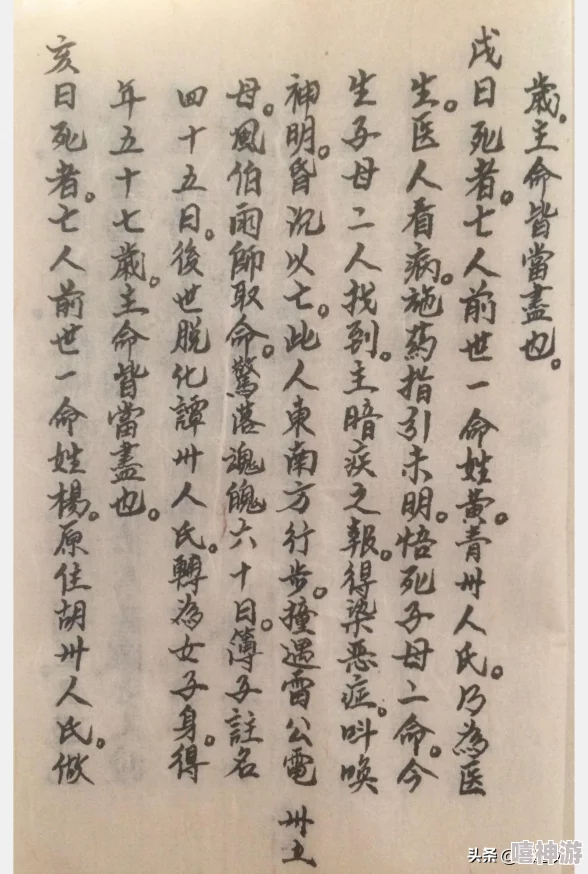 歲。主命皆當盡也。
戌日死者。亡人前世一命姓黃。青卅人氏。乃為医
生。医人看病。施药指引未明。悟死子母二命。今
生子母二人找到。主暗疾之報。得染恶症。叫唤
神明。昏沉以亡。此人東南方行步。撞遇雷公電
母。風伯雨師取命。驚落魂魄六十日。簿子註名
四十五日。後世脱化譚卅人氏。轉為女子身。得
年五十七歲。主命皆當盡也。
亥日死者。亡人前世一命姓楊。原住胡卅人氏。做
卅土
头条@
嘻神游